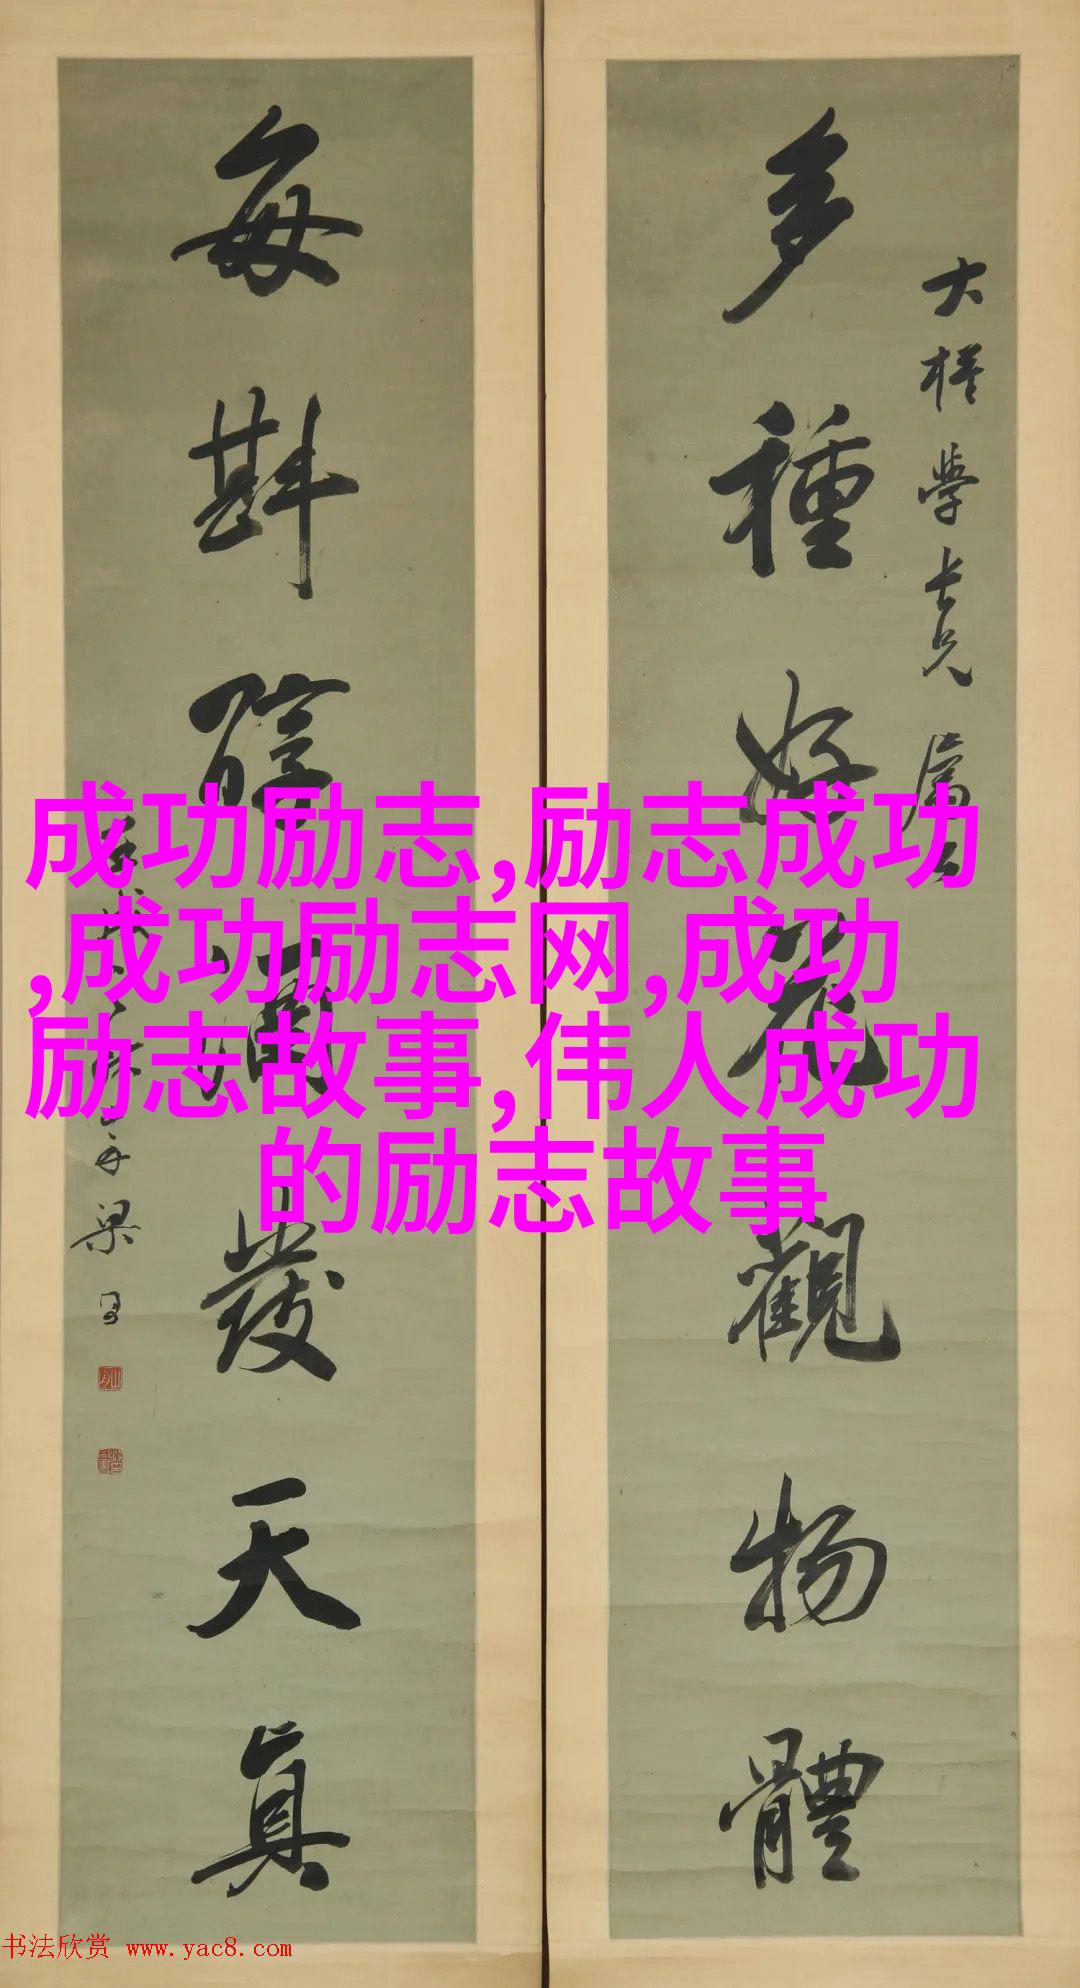 多種好花觀物體
大樁學長兄屬
每斟醇酒發天真
梁
成功励志,励志成功
,成功励志网,成功
励志故事,伟人成功
的励志故事
书法欣赏 www.yac8.com